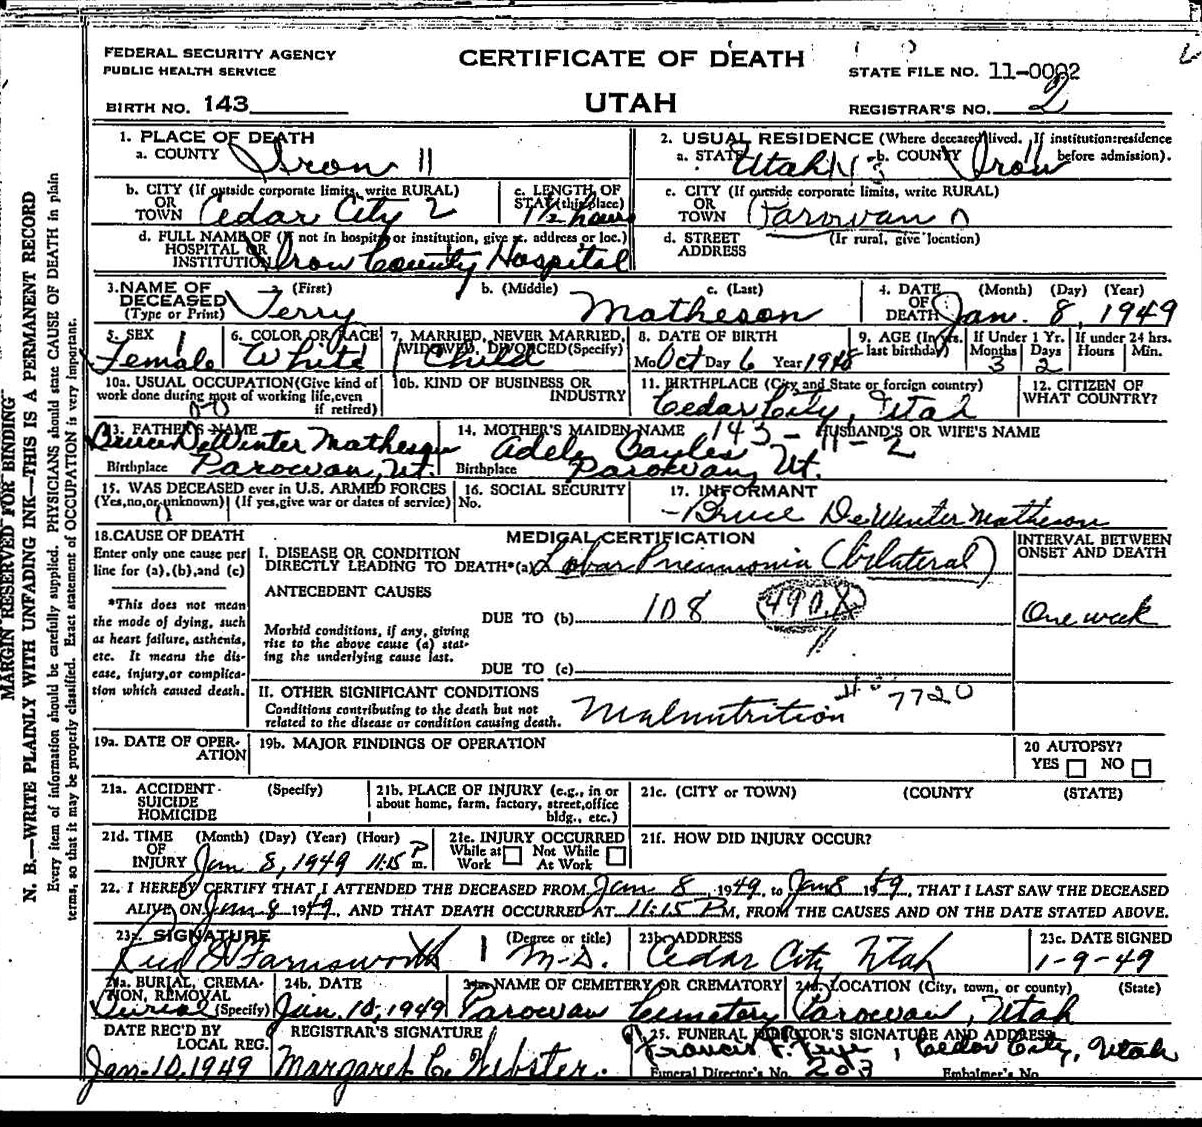 FEDERAL SECURITY AGENCY
PUBLIC HEALTH SERVICE
CERTIFICATE OF DEATH
STATE FILE NO. 11-0002
BIRTH NO. 143
UTAH
REGISTRAR'S NO. 2
1. PLACE OF DEATH
a. COUNTY Iron 11
2. USUAL RESIDENCE (Where deceased lived. If institution: residence before admission).
a. STATE Utah b. COUNTY Iron
b. CITY (If outside corporate limits, write RURAL)
OR
TOWN Cedar City 2
c. LENGTH OF
STAY (this place)
1½ hours
c. CITY (If outside corporate limits, write RURAL)
OR
TOWN Parowan
d. FULL NAME OF (If not in hospital or institution, give st. address or loc.)
HOSPITAL OR
INSTITUTION Iron County Hospital
d. STREET
ADDRESS
(If rural, give location)
3. NAME OF
DECEASED
(Type or Print)
a. (First) b. (Middle) c. (Last)
Terry Matheson
4. DATE
OF
DEATH
(Month) (Day) (Year)
Jan. 8, 1949
5. SEX
Female
6. COLOR OR RACE
White
7. MARRIED, NEVER MARRIED,
WIDOWED, DIVORCED (Specify)
Child
8. DATE OF BIRTH
Mo Oct Day 6 Year 1948
9. AGE (In yrs.
last birthday)
If Under 1 Yr.
Months Days
3 2
If under 24 hrs.
Hours Min.
10a. USUAL OCCUPATION (Give kind of
work done during most of working life, even
if retired)
10b. KIND OF BUSINESS OR
INDUSTRY
11. BIRTHPLACE (City and State or foreign country)
Cedar City, Utah
12. CITIZEN OF
WHAT COUNTRY?
13. FATHER'S NAME
Bruce DeWinter Matheson
Birthplace Parowan, Ut.
14. MOTHER'S MAIDEN NAME 143-11-2
Adele
Birthplace Parowan, Ut.
HUSBAND'S OR WIFE'S NAME
15. WAS DECEASED ever in U.S. ARMED FORCES
(Yes, no, or unknown) (If yes, give war or dates of service)
0
16. SOCIAL SECURITY
No.
17. INFORMANT
Bruce DeWinter Matheson
18. CAUSE OF DEATH
Enter only one cause per
line for (a), (b), and (c)
*This does not mean
the mode of dying, such
as heart failure, asthenia,
etc. It means the dis-
ease, injury, or complica-
tion which caused death.
MEDICAL CERTIFICATION
INTERVAL BETWEEN
ONSET AND DEATH
I. DISEASE OR CONDITION
DIRECTLY LEADING TO DEATH*(a) Lobar Pneumonia (bilateral)
ANTECEDENT CAUSES
DUE TO (b) 108 490X
One week
Morbid conditions, if any, giving
rise to the above cause (a) stat-
ing the underlying cause last.
DUE TO (c)
II. OTHER SIGNIFICANT CONDITIONS
Conditions contributing to the death but not
related to the disease or condition causing death.
Malnutrition 7720
19a. DATE OF OPER-
ATION
19b. MAJOR FINDINGS OF OPERATION
20 AUTOPSY?
YES NO
21a. ACCIDENT
SUICIDE
HOMICIDE
(Specify)
21b. PLACE OF INJURY (e.g., in or
about home, farm, factory, street, office
bldg., etc.)
21c. (CITY or TOWN) (COUNTY (STATE)
21d. TIME
OF
INJURY
(Month) (Day) (Year) (Hour)
Jan 8, 1949 11:15 P m.
21e. INJURY OCCURRED
While at Work Not While At Work
21f. HOW DID INJURY OCCUR?
22. I HEREBY CERTIFY THAT I ATTENDED THE DECEASED FROM Jan 8, 1949, to Jan 8 1949, THAT I LAST SAW THE DECEASED
ALIVE ON Jan 8 1949, AND THAT DEATH OCCURRED AT 11:15 P M, FROM THE CAUSES AND ON THE DATE STATED ABOVE.
23a. SIGNATURE
Farnsworth
(Degree or title)
M.D.
23b. ADDRESS
Cedar City Utah
23c. DATE SIGNED
1-9-49
24a. BURIAL, CREMA-
TION, REMOVAL
Burial (Specify)
24b. DATE
Jan. 10, 1949
24c. NAME OF CEMETERY OR CREMATORY
Parowan Cemetery
24d. LOCATION (City, town, or county) (State)
Parowan, Utah
DATE REC'D BY
LOCAL REG.
Jan. 10, 1949
REGISTRAR'S SIGNATURE
Margaret C. Webster.
25. FUNERAL DIRECTOR'S SIGNATURE AND ADDRESS
Francis, Cedar City, Utah
Funeral Director's No. 203
Embalmer's No.
MARGIN RESERVED FOR BINDING
N. B.—WRITE PLAINLY WITH UNFADING INK—THIS IS A PERMANENT RECORD
Every item of information should be carefully supplied. PHYSICIANS should state CAUSE OF DEATH in plain
terms, so that it may be properly classified. Exact statement of OCCUPATION is very important.